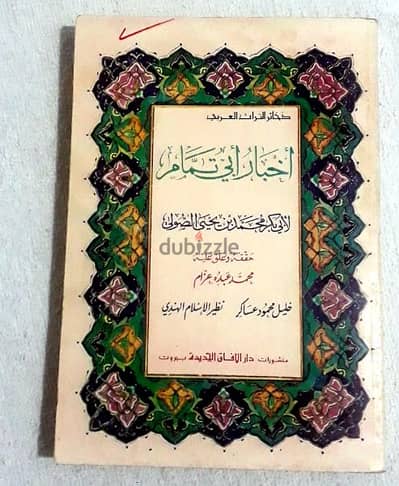 ذخائر التراث العربي
أخبار أبي تمام
لأبي بكر محمد بن يحيى الصولي
dubizzle
حققه وعلق عليه
محمد عبده عزام
خليل محمود عساكر نظير الإسلام الهندي
منشورات دار الآفاق الجديدة بيروت